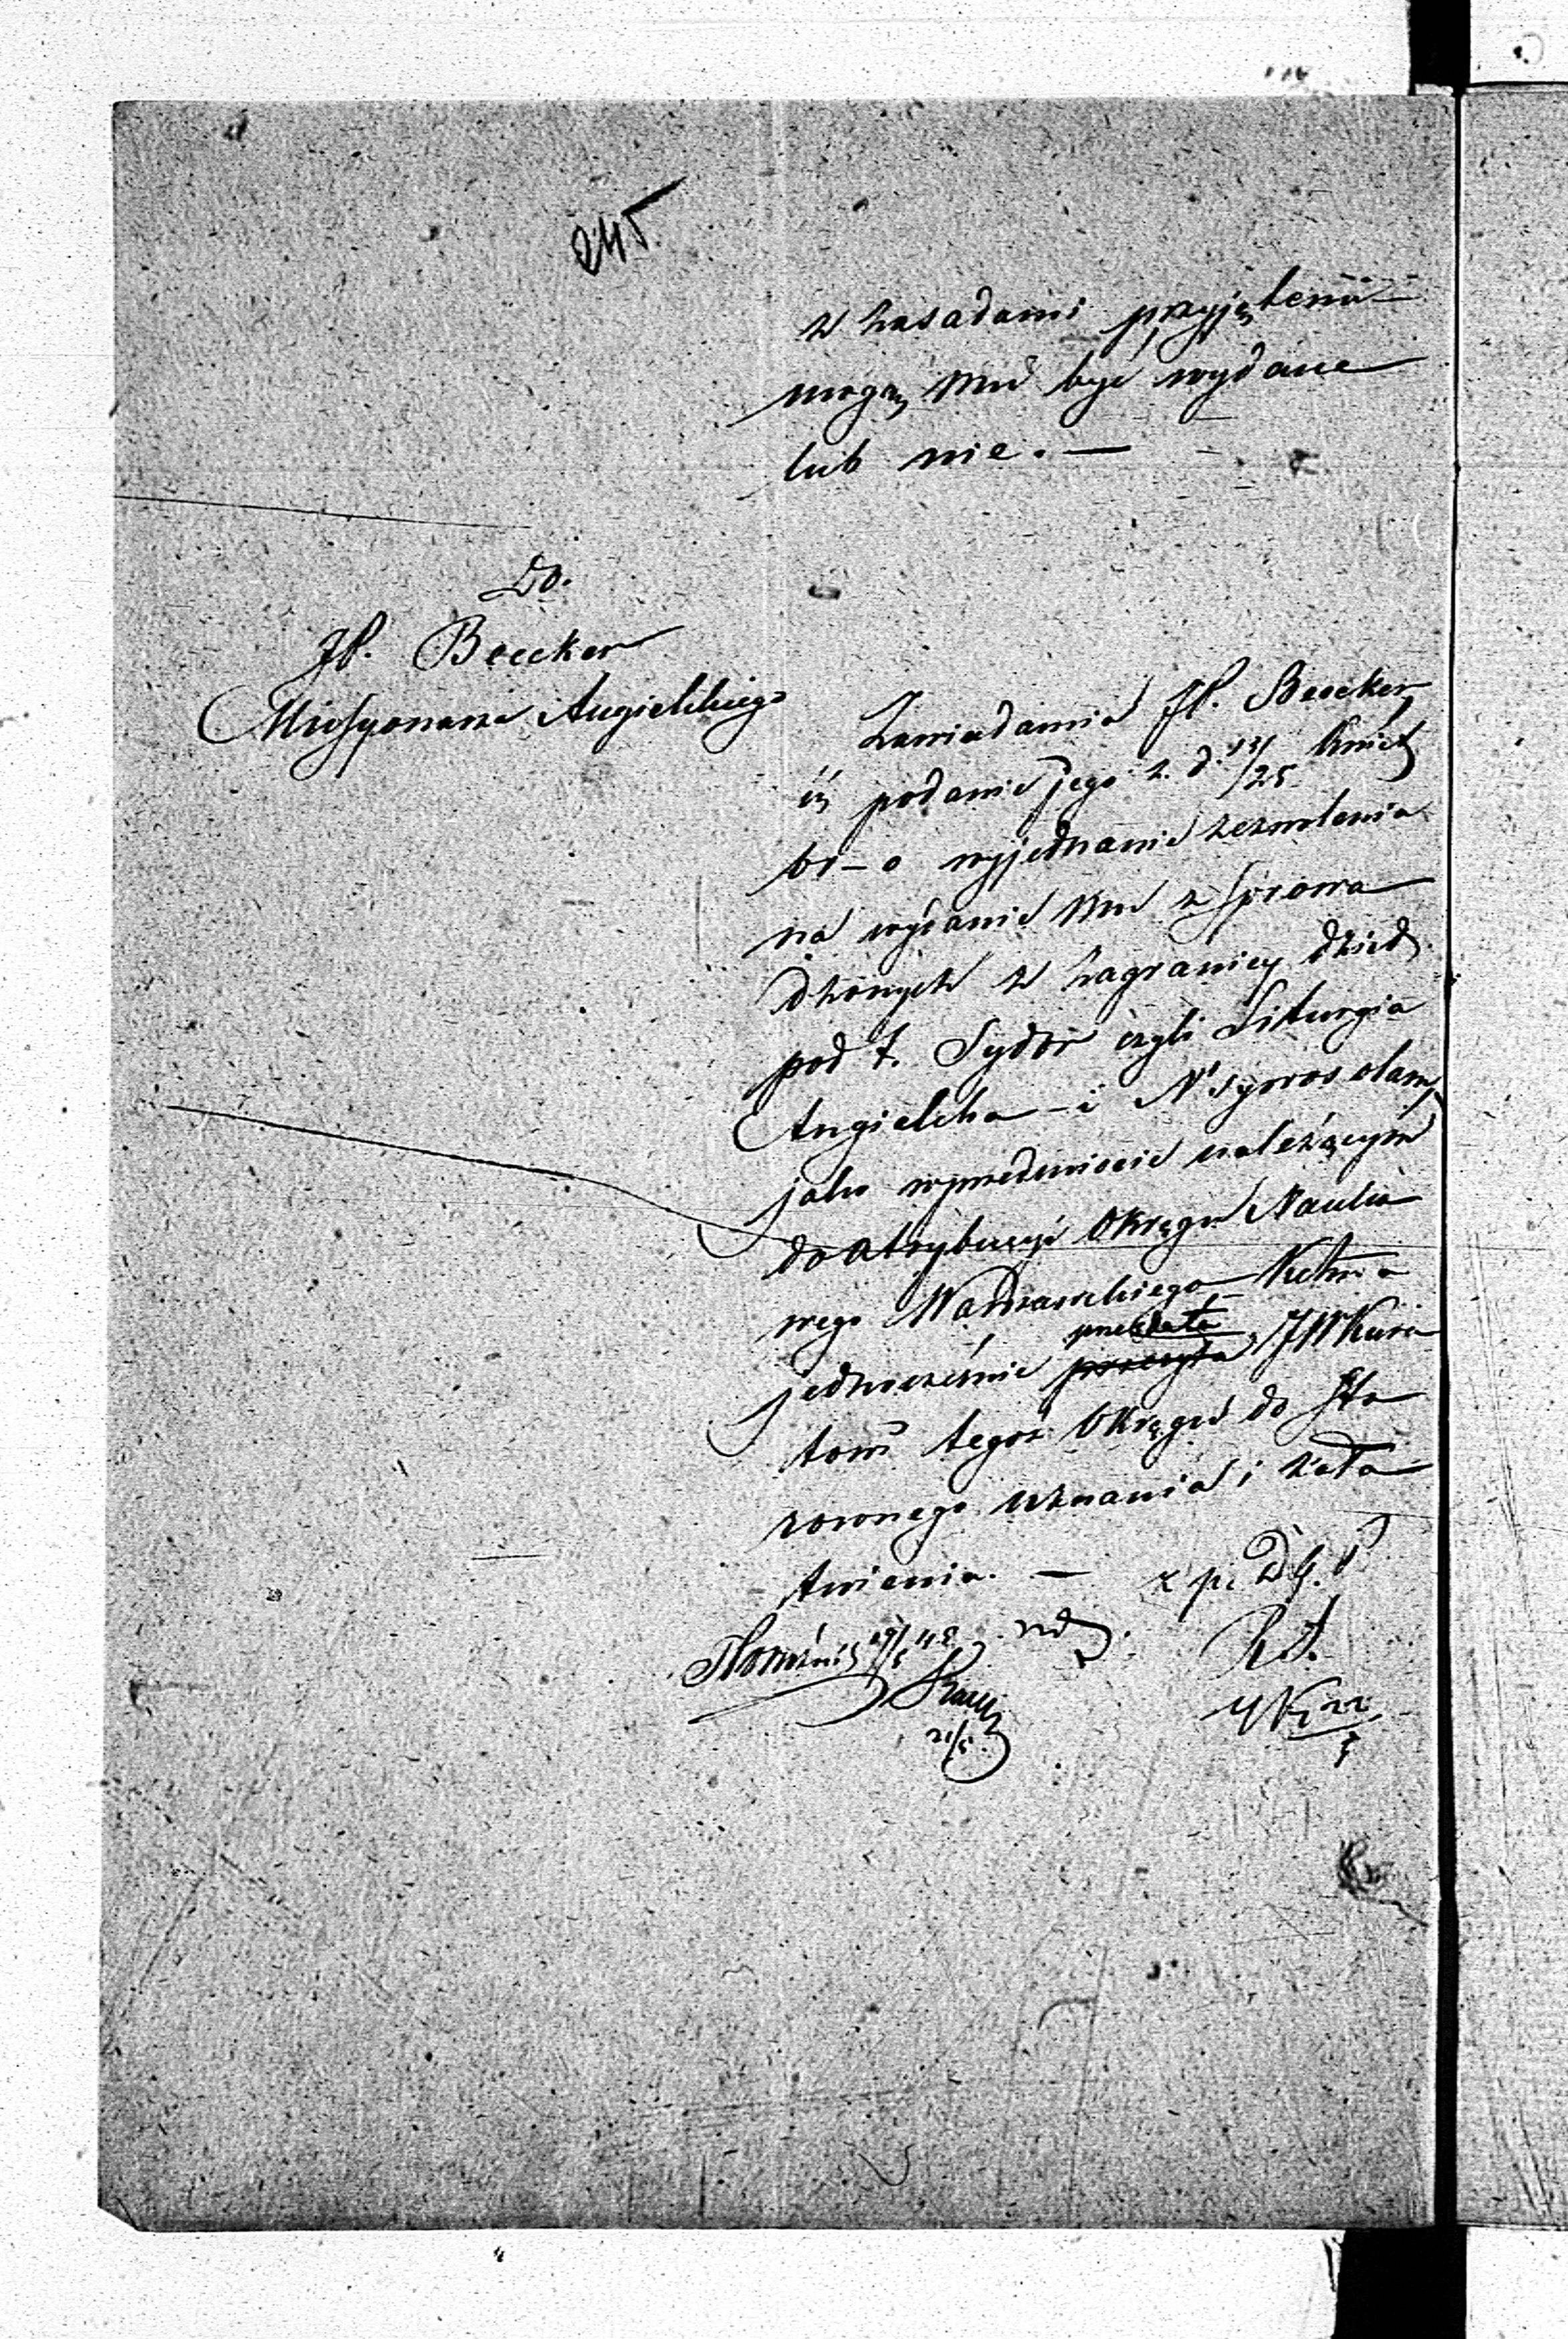 245
z zasadami przyjętemi
mogą mu być wydane
lub nie. —
Do.
JP. Beecker
Missyonarza Angielskiego
Zawiadamia JP. Beecker
iż podanie jego z. d. 13/25 Kwiet
br – o wyjednanie zezwolenia
na wydanie mu z sprowa
dzonych z zagranicy dzieł
pod t. Sydór czyli Liturgia
Angielska – i N'sywos olam,
jako w przedmiocie należącym
do atrybucyi Okręgu Nauko
wego Warszawskiego –
przekłada
jednocześnie przesyła JW Kura
torowi tegoż Okręgu do Sto
sownego uznania i zała
twienia. — z p. D G.
19/5 48
21/5